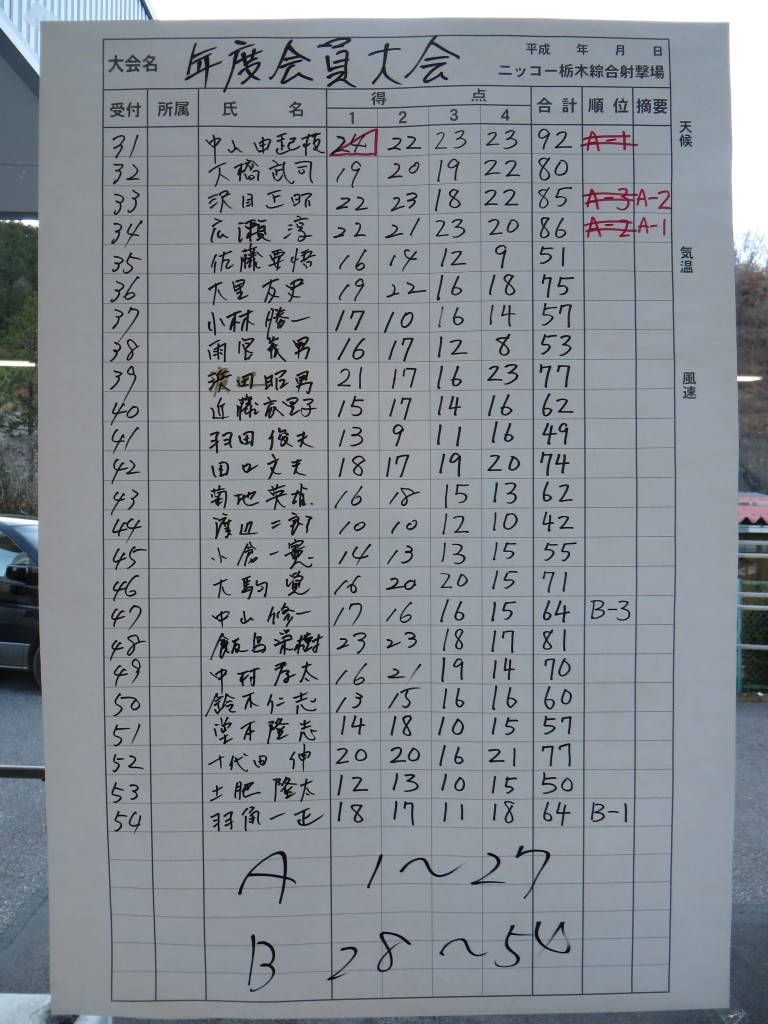 大会名 年度会員大会 平成 年 月 日
ニッコー栃木綜合射撃場
受付 所属 氏 名 得 点 合計 順位 摘要
1 2 3 4
31 中山由起枝 24 22 23 23 92 A-1
32 大橋武司 19 20 19 22 80
33 沢目正昭 22 23 18 22 85 A-3 A-2
34 広瀬 淳 22 21 23 20 86 A-2 A-1
35 佐藤 悟 16 14 12 9 51
36 大里友史 19 22 16 18 75
37 小林勝一 17 10 16 14 57
38 雨宮 男 16 17 12 8 53
39 濱田昭男 21 17 16 23 77
40 近藤 里子 15 17 14 16 62
41 羽田俊夫 13 9 11 16 49
42 田口文夫 18 17 19 20 74
43 菊地英 16 18 15 13 62
44 渡辺二郎 10 10 12 10 42
45 小倉一寛 14 13 13 15 55
46 大駒 覚 16 20 20 15 71
47 中山修一 17 16 16 15 64 B-3
48 飯島栄樹 23 23 18 17 81
49 中村孝太 16 21 19 14 70
50 鈴木仁志 13 15 16 16 60
51 堂本隆志 14 18 10 15 57
52 十代田 伸 20 20 16 21 77
53 土肥隆太 12 13 10 15 50
54 羽角一正 18 17 11 18 64 B-1
A 1～27
B 28～54
天候
気温
風速